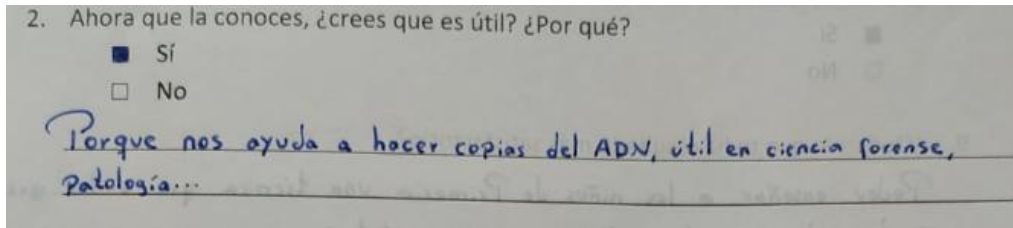 2. Ahora que la conoces, ¿crees que es útil? ¿Por qué?
Sí
No
Porque nos ayuda a hacer copias del ADN, útil en ciencia forense,
Patología...